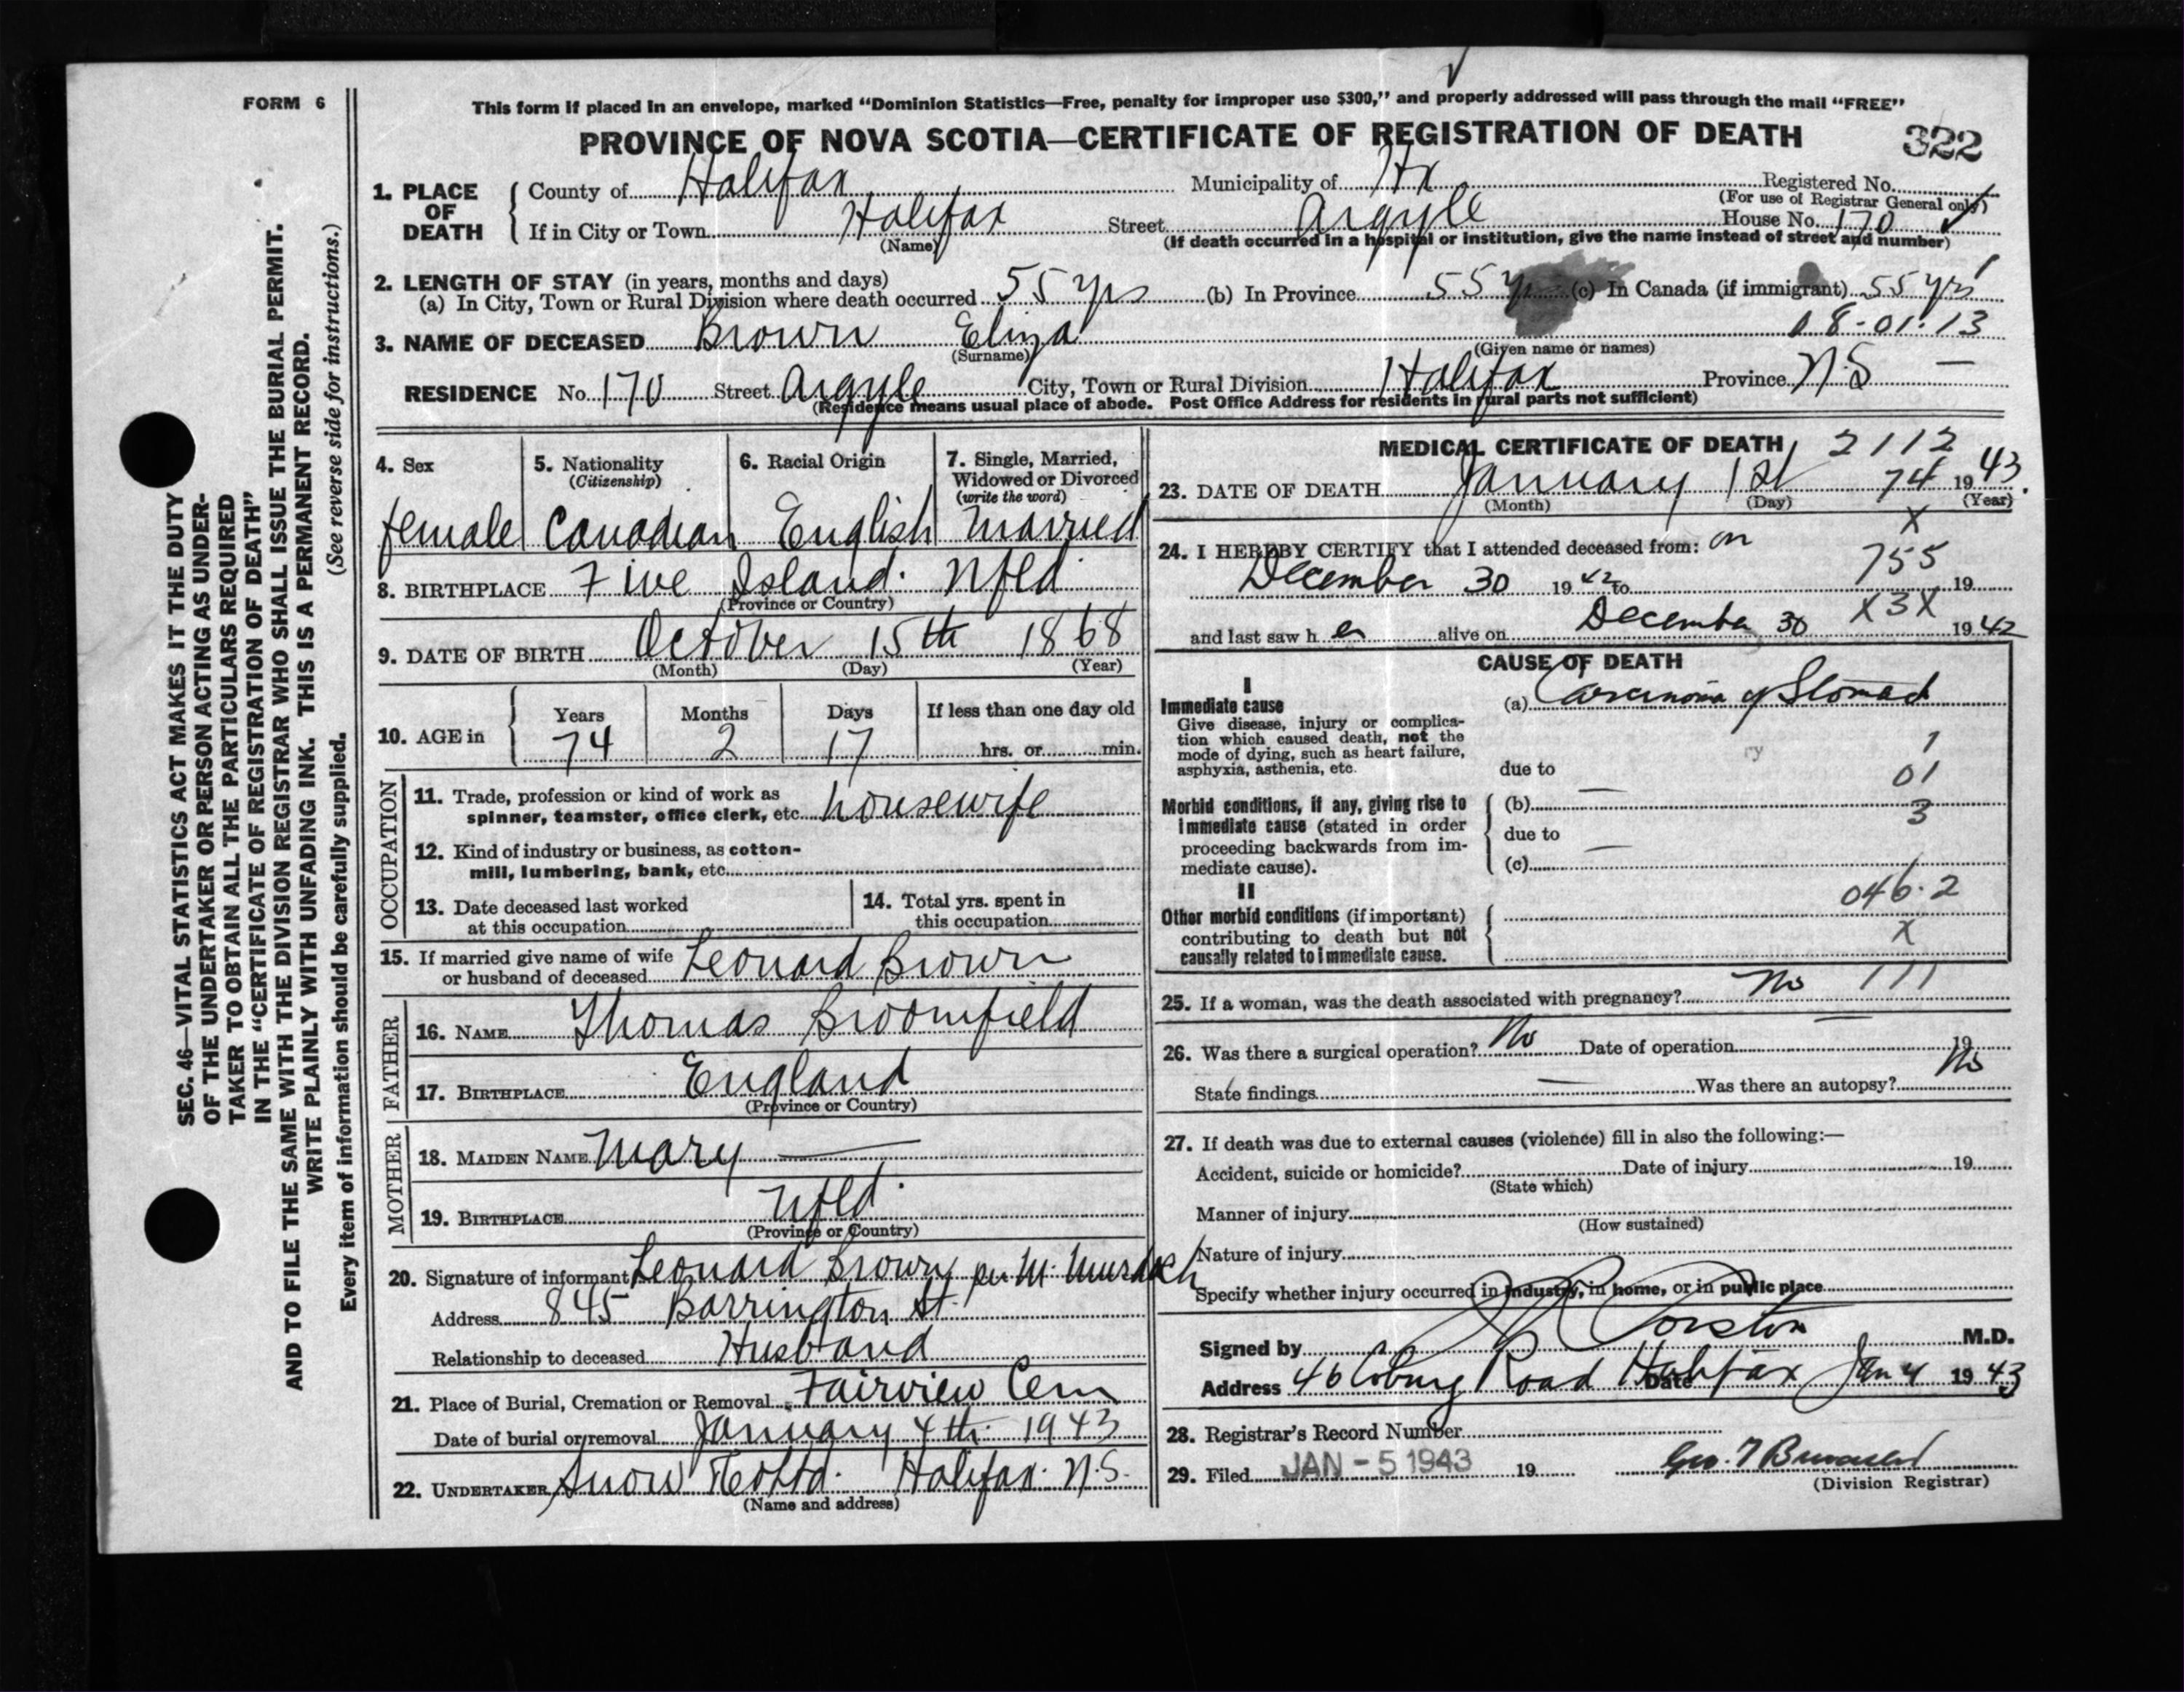 FORM 6
This form if placed in an envelope, marked “Dominion Statistics—Free, penalty for improper use $300,” and properly addressed will pass through the mail “FREE”
PROVINCE OF NOVA SCOTIA—CERTIFICATE OF REGISTRATION OF DEATH
322
1. PLACE OF DEATH
County of Halifax Municipality of Hx Registered No.
(For use of Registrar General only)
If in City or Town Halifax Street Argyle House No. 170
(Name) (If death occurred in a hospital or institution, give the name instead of street and number)
2. LENGTH OF STAY (in years, months and days)
(a) In City, Town or Rural Division where death occurred 55 yrs (b) In Province 55 yrs (c) In Canada (if immigrant) 55 yrs
18-01-13
3. NAME OF DECEASED Brown Eliza
(Surname) (Given name or names)
RESIDENCE No. 170 Street Argyle City, Town or Rural Division Halifax Province N.S —
(Residence means usual place of abode. Post Office Address for residents in rural parts not sufficient)
SEC. 46—VITAL STATISTICS ACT MAKES IT THE DUTY
OF THE UNDERTAKER OR PERSON ACTING AS UNDER-
TAKER TO OBTAIN ALL THE PARTICULARS REQUIRED
IN THE “CERTIFICATE OF REGISTRATION OF DEATH”
AND TO FILE THE SAME WITH THE DIVISION REGISTRAR WHO SHALL ISSUE THE BURIAL PERMIT.
WRITE PLAINLY WITH UNFADING INK. THIS IS A PERMANENT RECORD.
(See reverse side for instructions.)
Every item of information should be carefully supplied.
4. Sex
female
5. Nationality
(Citizenship)
Canadian
6. Racial Origin
English
7. Single, Married,
Widowed or Divorced
(write the word)
Married
8. BIRTHPLACE Five Island. Nfld.
(Province or Country)
9. DATE OF BIRTH October 15th 1868
(Month) (Day) (Year)
10. AGE in
Years Months Days If less than one day old
74 2 17 hrs. or min.
OCCUPATION
11. Trade, profession or kind of work as
spinner, teamster, office clerk, etc. housewife
12. Kind of industry or business, as cotton-
mill, lumbering, bank, etc.
13. Date deceased last worked
at this occupation
14. Total yrs. spent in
this occupation
15. If married give name of wife
or husband of deceased Leonard Brown
FATHER
16. NAME Thomas Broomfield
17. BIRTHPLACE England
(Province or Country)
MOTHER
18. MAIDEN NAME Mary —
19. BIRTHPLACE Nfld.
(Province or Country)
20. Signature of informant Leonard Brown per M. Murdoch
Address 845 Barrington St.
Relationship to deceased Husband
21. Place of Burial, Cremation or Removal Fairview Cem
Date of burial or removal January 4th. 1943
22. UNDERTAKER Snow & Co Ltd. Halifax. N.S.
(Name and address)
MEDICAL CERTIFICATE OF DEATH
2112
23. DATE OF DEATH January 1st 74 1943.
(Month) (Day) (Year)
X
24. I HEREBY CERTIFY that I attended deceased from: on
755
December 30 1942 to 19
X3X
and last saw her alive on December 30 1942
CAUSE OF DEATH
I
Immediate cause
Give disease, injury or complica-
tion which caused death, not the
mode of dying, such as heart failure,
asphyxia, asthenia, etc.
(a) Carcinoma of Stomach
1
due to —
01
Morbid conditions, if any, giving rise to
immediate cause (stated in order
proceeding backwards from im-
mediate cause).
(b)
3
due to —
(c)
II
Other morbid conditions (if important)
contributing to death but not
causally related to immediate cause.
046.2
X
25. If a woman, was the death associated with pregnancy? No 111
26. Was there a surgical operation? No Date of operation — 19
State findings — Was there an autopsy? No
27. If death was due to external causes (violence) fill in also the following:—
Accident, suicide or homicide? Date of injury 19
(State which)
Manner of injury
(How sustained)
Nature of injury
Specify whether injury occurred in industry, in home, or in public place
Signed by Corston M.D.
Address 46 Coburg Road Halifax Date Jan 4 1943
28. Registrar's Record Number
29. Filed JAN - 5 1943 19
(Division Registrar)